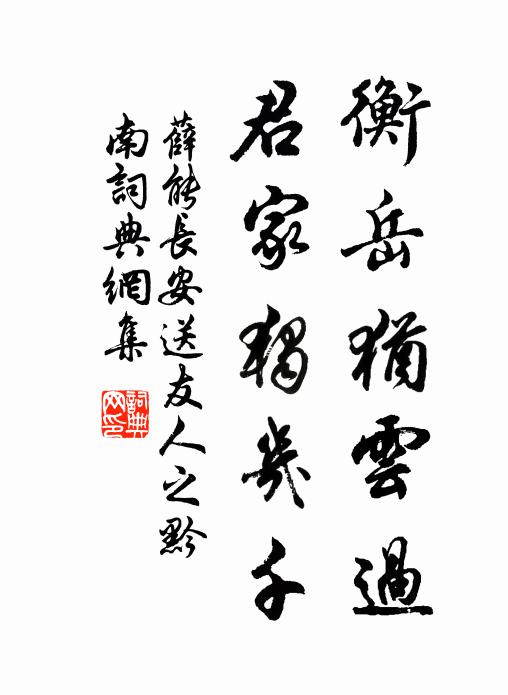 衡岳猶雲過
君家獨幾千
薛能長安送友人之黔
南詞典網集
詞典网印